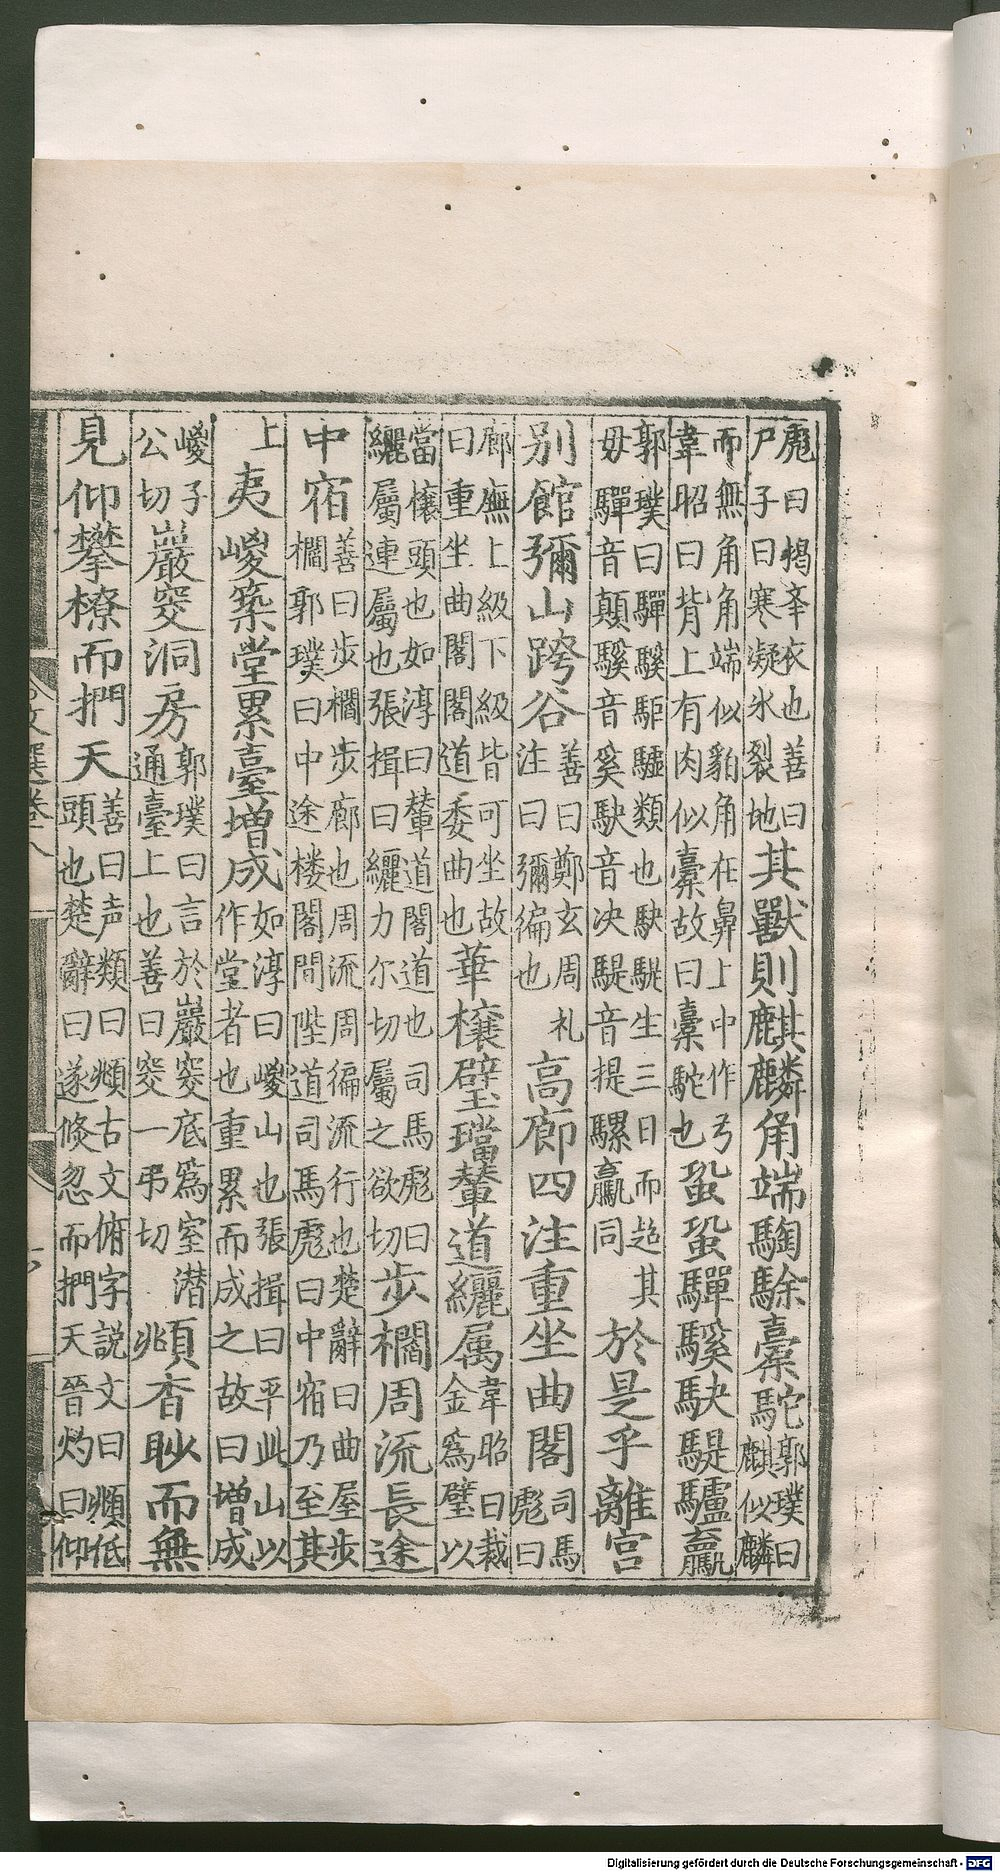 彪曰揭衣也善曰尸子曰寒凝冰裂地其獸則麒麟角端騊駼橐駝郭璞曰麒似麟
而無角角端似豹角在鼻上中作弓韋昭曰背上有肉似橐故曰橐駝也蛩蛩驒騱駃騠驢驘
郭璞曰驒騱駏驉類也駃騠生三日而超其毋驒音顛騱音奚駃音决騠音提騾驘同於是乎離宫
别館彌山跨谷善曰鄭玄周礼注曰彌徧也高廊四注重坐曲閣司馬彪曰
廊廡上級下級皆可坐故曰重坐曲閣閣道委曲也華榱璧璫輦道纚属韋昭曰裁金爲璧以
當榱頭也如淳曰輦道閣道也司馬彪曰纚屬連屬也張揖曰纚力尔切屬之欲切步櫩周流長途
中宿善曰步櫩步廊也周流周徧流行也楚辭曰曲屋步櫩郭璞曰中途楼閣間陛道司馬彪曰中宿乃至其
上夷嵕築堂累臺增成如淳曰嵕山也張揖曰平此山以作堂者也重累而成之故曰增成
嵕子公切巖窔洞房郭璞曰言於巖窔底爲室潜通臺上也善曰窔一弔切頫杳眇而無
見仰攀橑而捫天善曰声類曰頫古文俯字説文曰頫低頭也楚辭曰遂倐忽而捫天晉灼曰仰
文選卷八
Digitalisierung gefördert durch die Deutsche Forschungsgemeinschaft - DFG